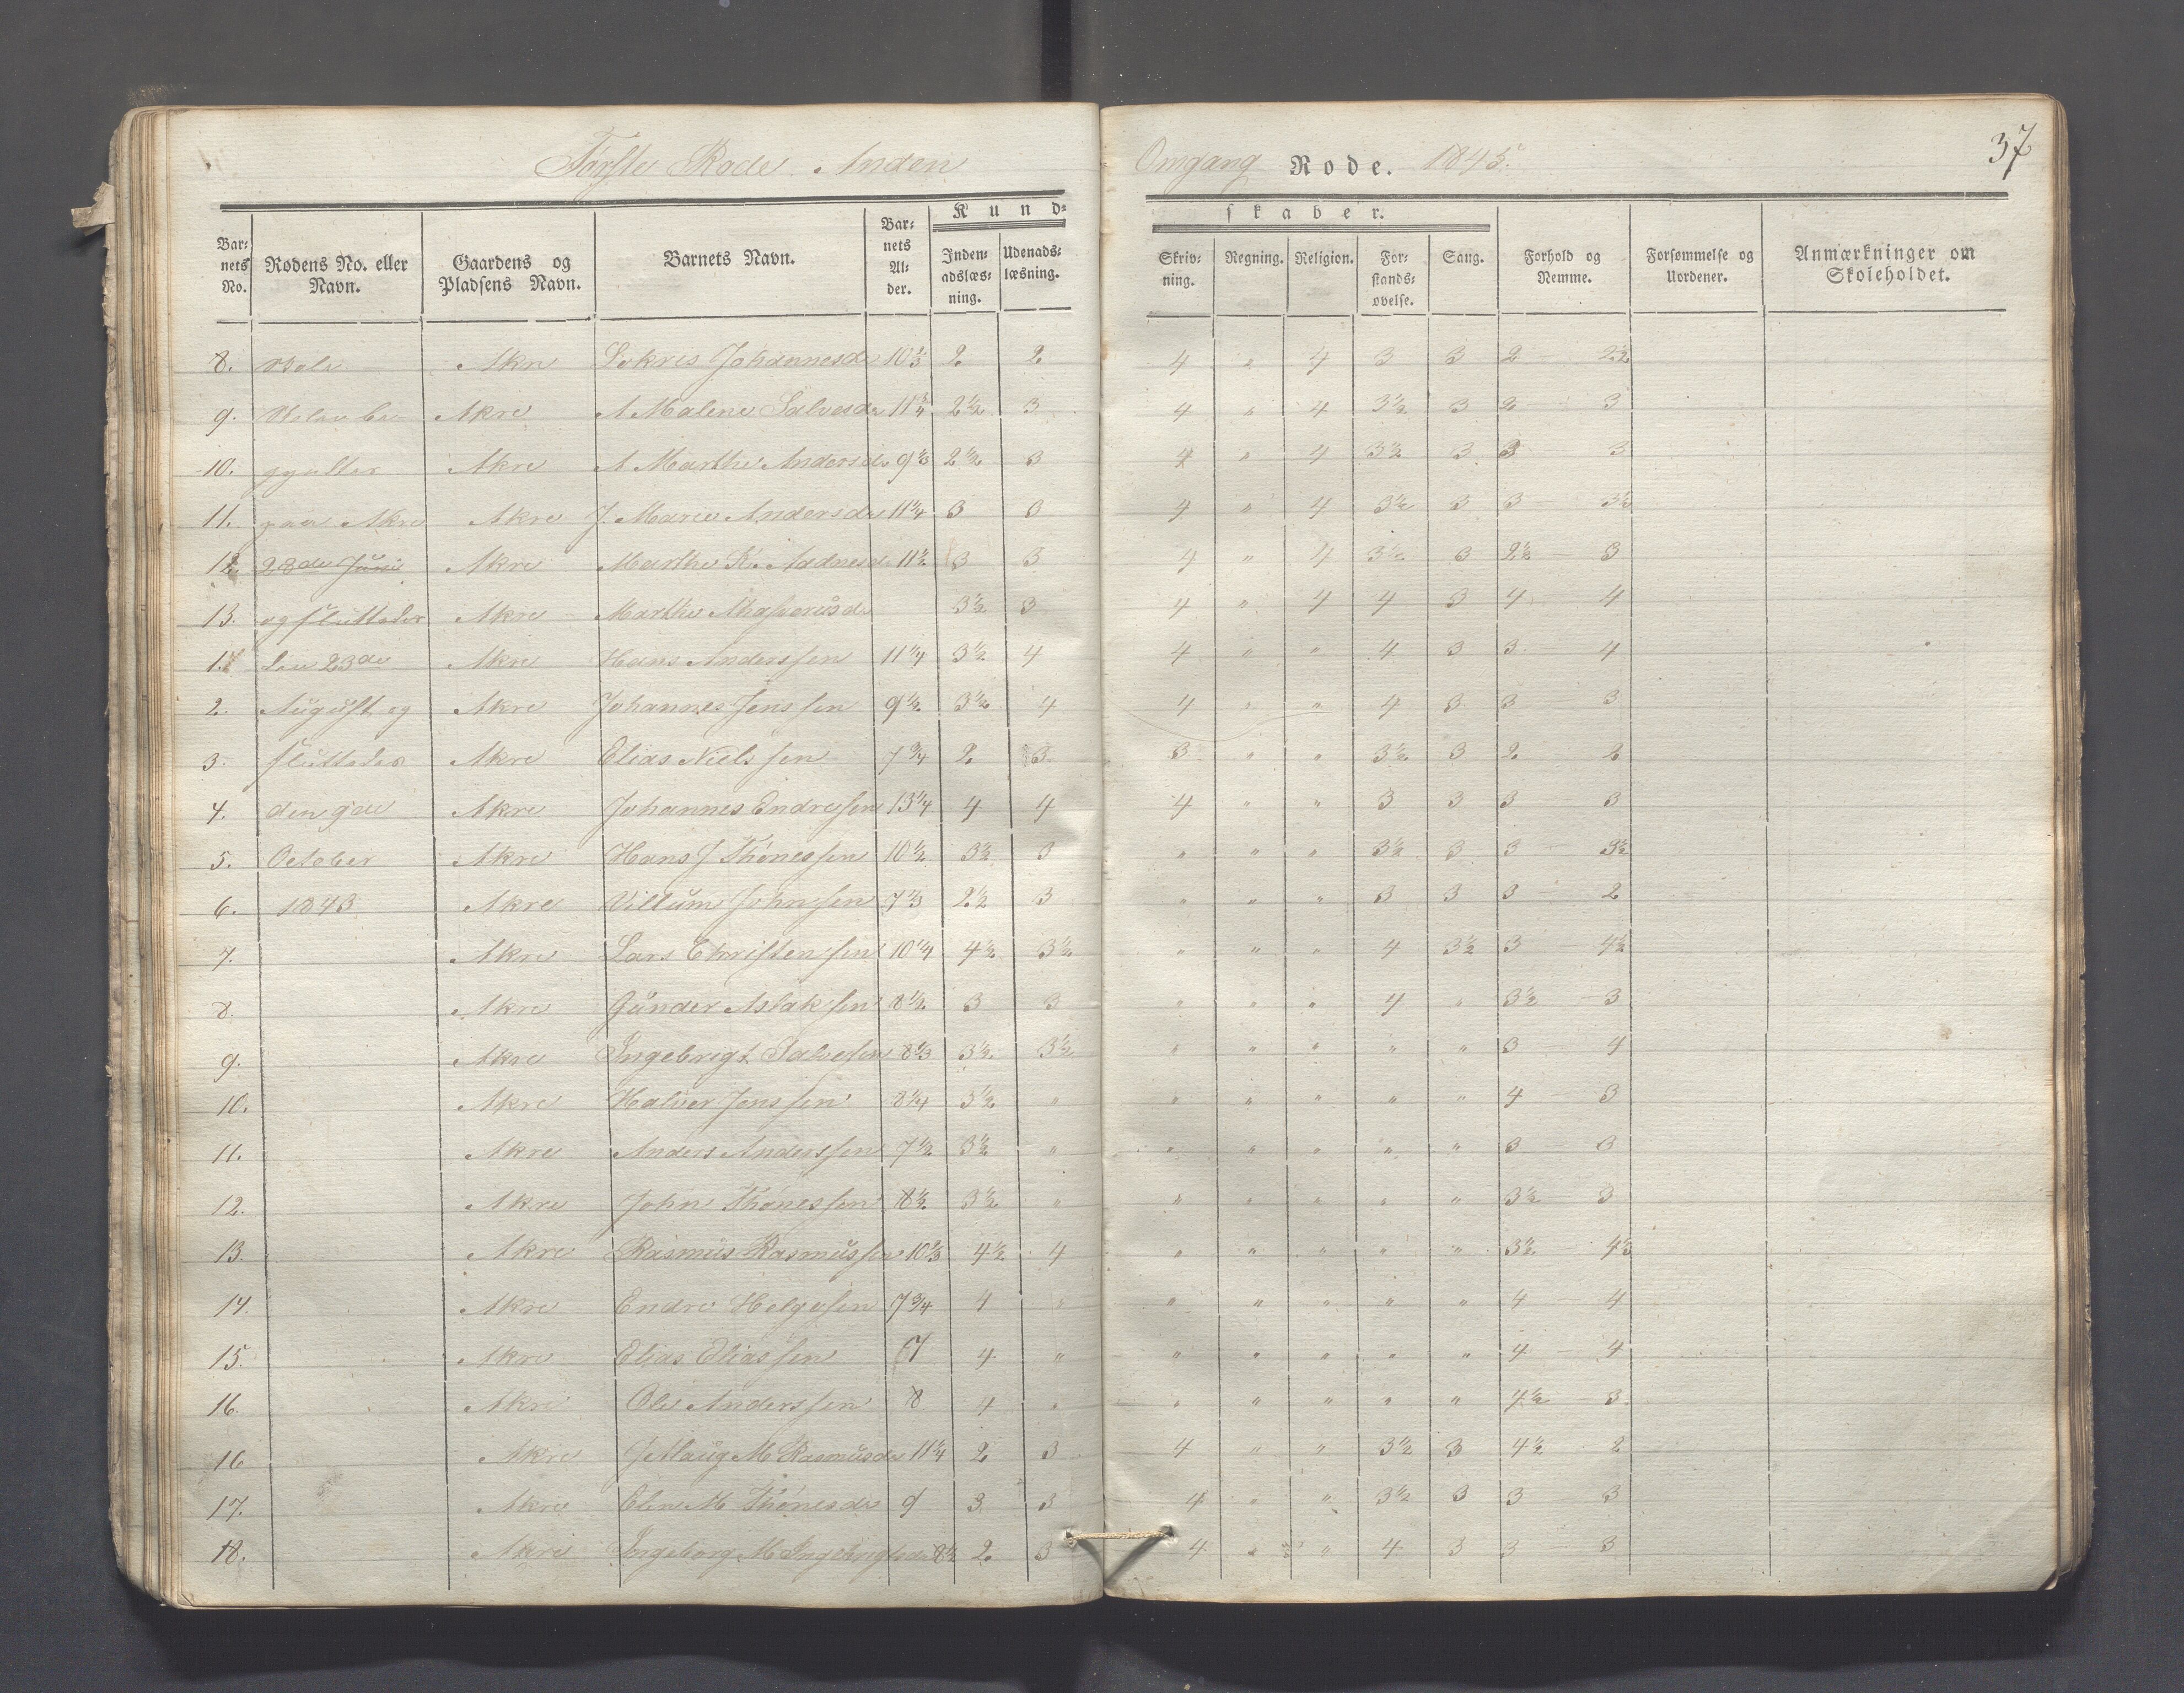 37
Første Rode. Anden Omgang Rode. 1845.
Kundskaber.
Barnets No. | Rodens No. eller Navn. | Gaardens og Pladsens Navn. | Barnets Navn. | Barnets Alder. | Indenadslæsning. | Udenadslæsning. | Skrivning. | Regning. | Religion. | Forstandsøvelse. | Sang. | Forhold og Nemme. | Forsømmelse og Uordener. | Anmærkninger om Skoleholdet.
8. | | Akre | Johannesd | 10 2/3 | 2 | 2 | 4 | " | 4 | 3 | 3 | 2 - 2½
9. | | Akre | A Malene Salvesd | 11¾ | 2½ | 3 | 4 | " | 4 | 3½ | 3 | 2 - 3
10. | | Akre | A Marthe Andersd | 9⅓ | 2½ | 3 | 4 | " | 4 | 3½ | 3 | 3 3
11. | paa Akre | Akre | J. Marie Andersd | 11¼ | 3 | 3 | 4 | " | 4 | 3½ | 3 | 3 - 3½
12. | 28de Juni | Akre | Marthe K. Adnesd | 11½ | 3 | 3 | 4 | " | 4 | 3½ | 3 | 2½ - 3
13. | og sluttedes | Akre | Marthe | | 3½ | 3 | 4 | " | 4 | 4 | 3 | 4 - 4
1. | den 23de | Akre | Hans Anderssen | 11¼ | 3½ | 4 | 4 | " | " | 4 | 3 | 3 - 4
2. | August og | Akre | Johannes Jenssen | 9½ | 3½ | 4 | 4 | " | " | 4 | 3 | 3 - 3
3. | sluttedes | Akre | Elias Nielssen | 7¾ | 2 | 3 | 3 | " | " | 3½ | 3 | 2 - 2
4. | den 9de | Akre | Johannes Endresen | 13¼ | 4 | 4 | 4 | " | " | 3 | 3 | 3 3
5. | October | Akre | Hans J Thönessen | 10½ | 3½ | 3 | " | " | " | 3½ | 3 | 3 - 3½
6. | 1843 | Akre | Villum Johnsen | 7⅓ | 2½ | 3 | " | " | " | 3 | 3 | 3 - 2
7. | | Akre | Lars Christensen | 10¼ | 4½ | 3½ | " | " | " | 4 | 3½ | 3 4½
8. | | Akre | Gunder Aslaksen | 8½ | 3 | 3 | " | " | " | 4 | " | 3½ - 3
9. | | Akre | Ingebrigt Salvesen | 8⅔ | 3½ | 3½ | " | " | " | " | " | 3 - 4
10. | | Akre | Halver Jenssen | 8¼ | 3½ | " | " | " | " | " | " | 4 - 3
11. | | Akre | Anders Anderssen | 7½ | 3½ | " | " | " | " | " | " | 3 - 3
12. | | Akre | John Thönessen | 8½ | 3½ | " | " | " | " | " | " | 3½ - 3
13. | | Akre | Rasmus Rasmussen | 10⅔ | 4½ | 4 | " | " | " | " | " | 3½ - 4½
14. | | Akre | Endre Helgesen | 7¾ | 4 | " | " | " | " | " | " | 4 - 4
15. | | Akre | Elias Eliassen | 7 | 4 | " | " | " | " | " | " | 4 - 4
16. | | Akre | Ole Anderssen | 8 | 4 | " | " | " | " | " | " | 4½ - 3
16 | | Akre | M Rasmusd | 11¼ | 2 | 3 | 4 | " | " | 3½ | 3 | 4½ - 2
17. | | Akre | Elen M Thönesd | 9 | 3 | 3 | 4 | " | " | 3½ | 3 | 3 3
18. | | Akre | Ingeborg M Ingebrigtsd | 8½ | 2 | 3 | 4 | " | " | 4 | 3 | 3 - 3